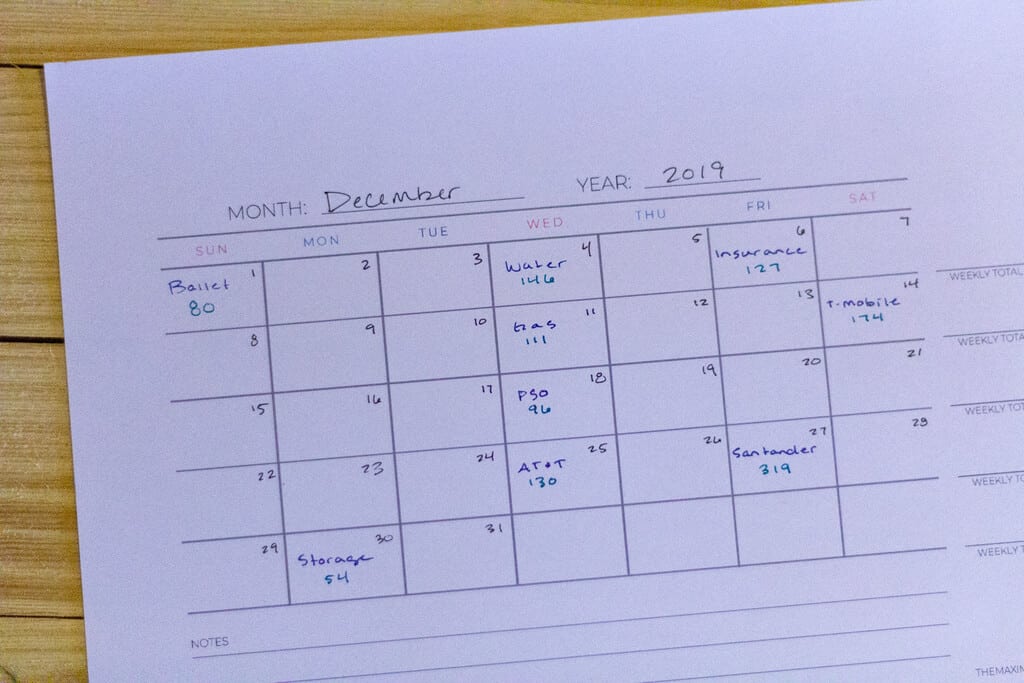 MONTH: December YEAR: 2019
SUN MON TUE WED THU FRI SAT
1 2 3 4 5 6 7
Ballet Water Insurance
80 146 127
WEEKLY TOTAL
8 9 10 11 12 13 14
Gas T-mobile
111 174
WEEKLY TOTA
15 16 17 18 19 20 21
PSO
96
WEEKLY TOT
22 23 24 25 26 27 28
AT&T Santander
130 319
WEEKLY TO
29 30 31
Storage
54
WEEKLY T
NOTES
THEMAXIM